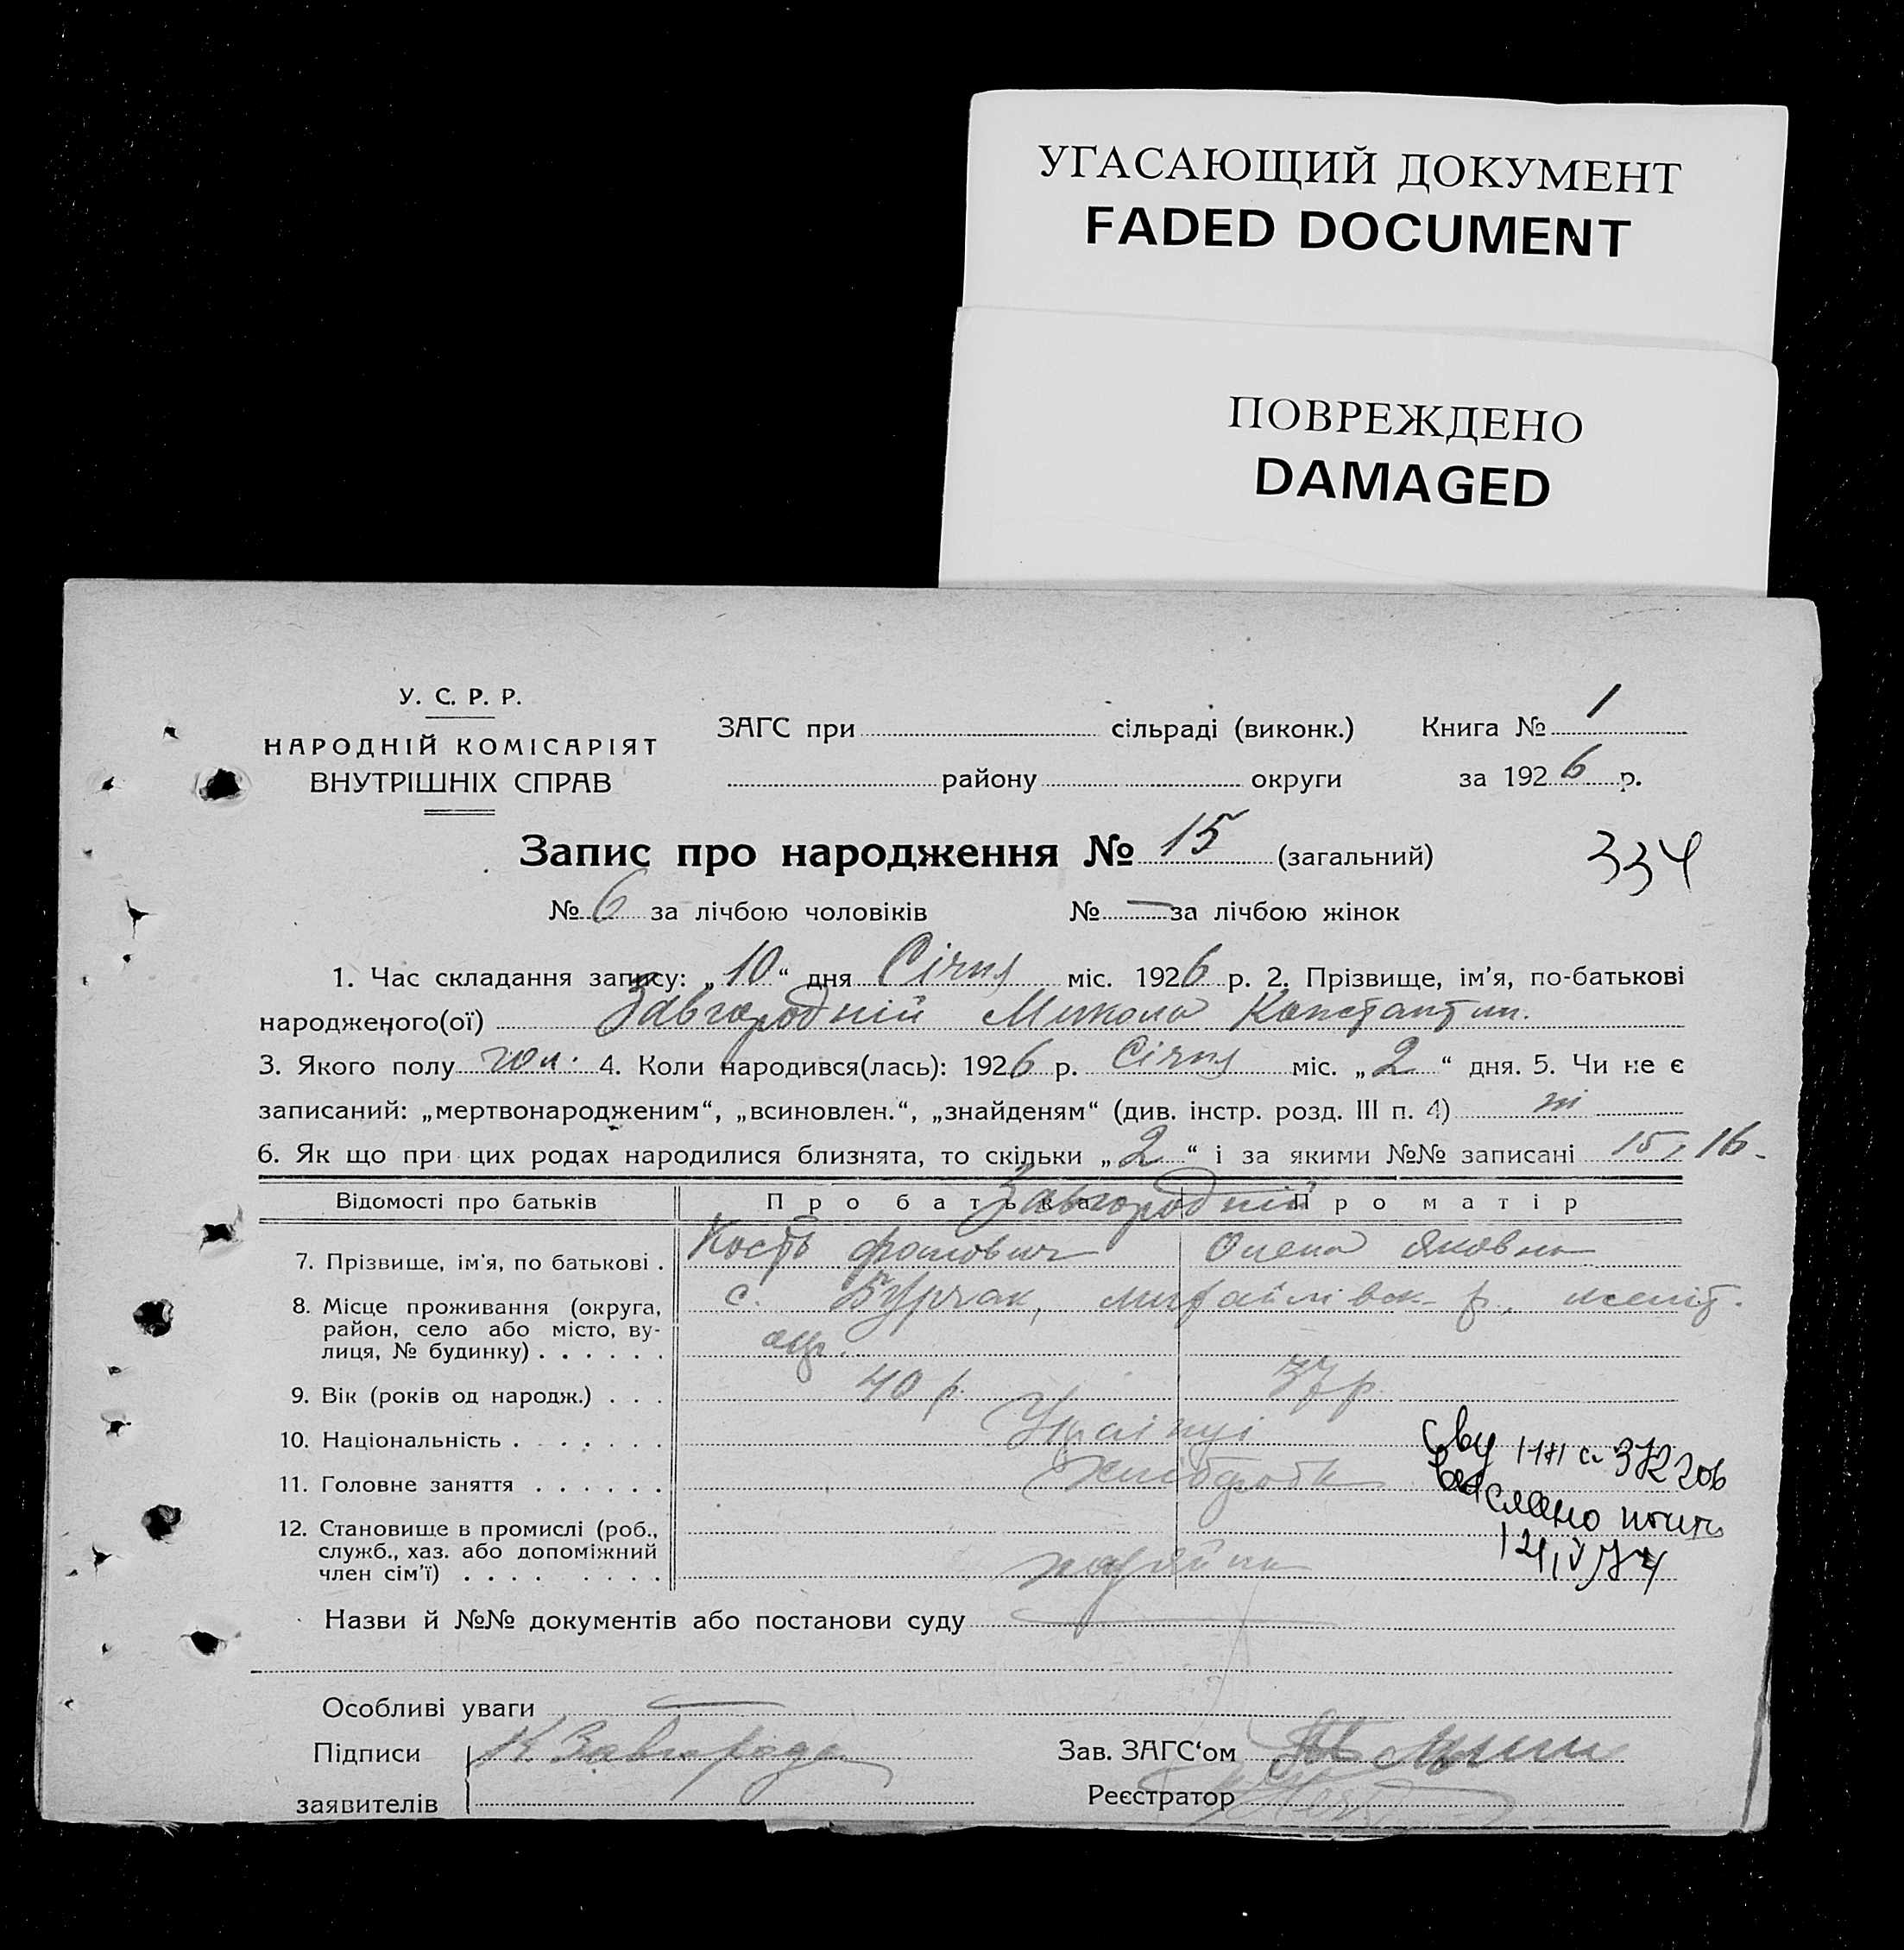 УГАСАЮЩИЙ ДОКУМЕНТ
FADED DOCUMENT
ПОВРЕЖДЕНО
DAMAGED
У. С. Р. Р.
НАРОДНІЙ КОМІСАРІЯТ
ВНУТРІШНІХ СПРАВ
ЗАГС при сільраді (виконк.) Книга № 1
району округи за 1926 р.
Запис про народження № 15 (загальний)
334
№ 6 за лічбою чоловіків № — за лічбою жінок
1. Час складання запису: „10“ дня Січня міс. 1926 р. 2. Прізвище, ім’я, по-батькові
народженого(ої) Завгородній Микола Константин.
3. Якого полу чол. 4. Коли народився(лась): 1926 р. Січня міс. „2“ дня. 5. Чи не є
записаний: „мертвонародженим“, „всиновлен.“, „знайденям“ (див. інстр. розд. III п. 4) ні
6. Як що при цих родах народилися близнята, то скільки „2“ і за якими №№ записані 15, 16.
Відомості про батьків Про батька Про матір
Завгородній
7. Прізвище, ім’я, по батькові . Кость Фотович Олена Яковна
8. Місце проживання (округа, с. Бурчак, Михайлівск. р., меліт.
район, село або місто, ву-
лиця, № будинку) . . . . . . окр.
9. Вік (років од народж.) . . . 40 р. 37 р.
10. Національність . . . . . . . Українці
11. Головне заняття . . . . . . хлібороби
12. Становище в промислі (роб.,
служб., хаз. або допоміжний
член сім’ї) . . . . . . . . . хазяїни
372
Назви й №№ документів або постанови суду
Особливі уваги
Підписи К Завгородн Зав. ЗАГС‘ом
заявителів Реєстратор